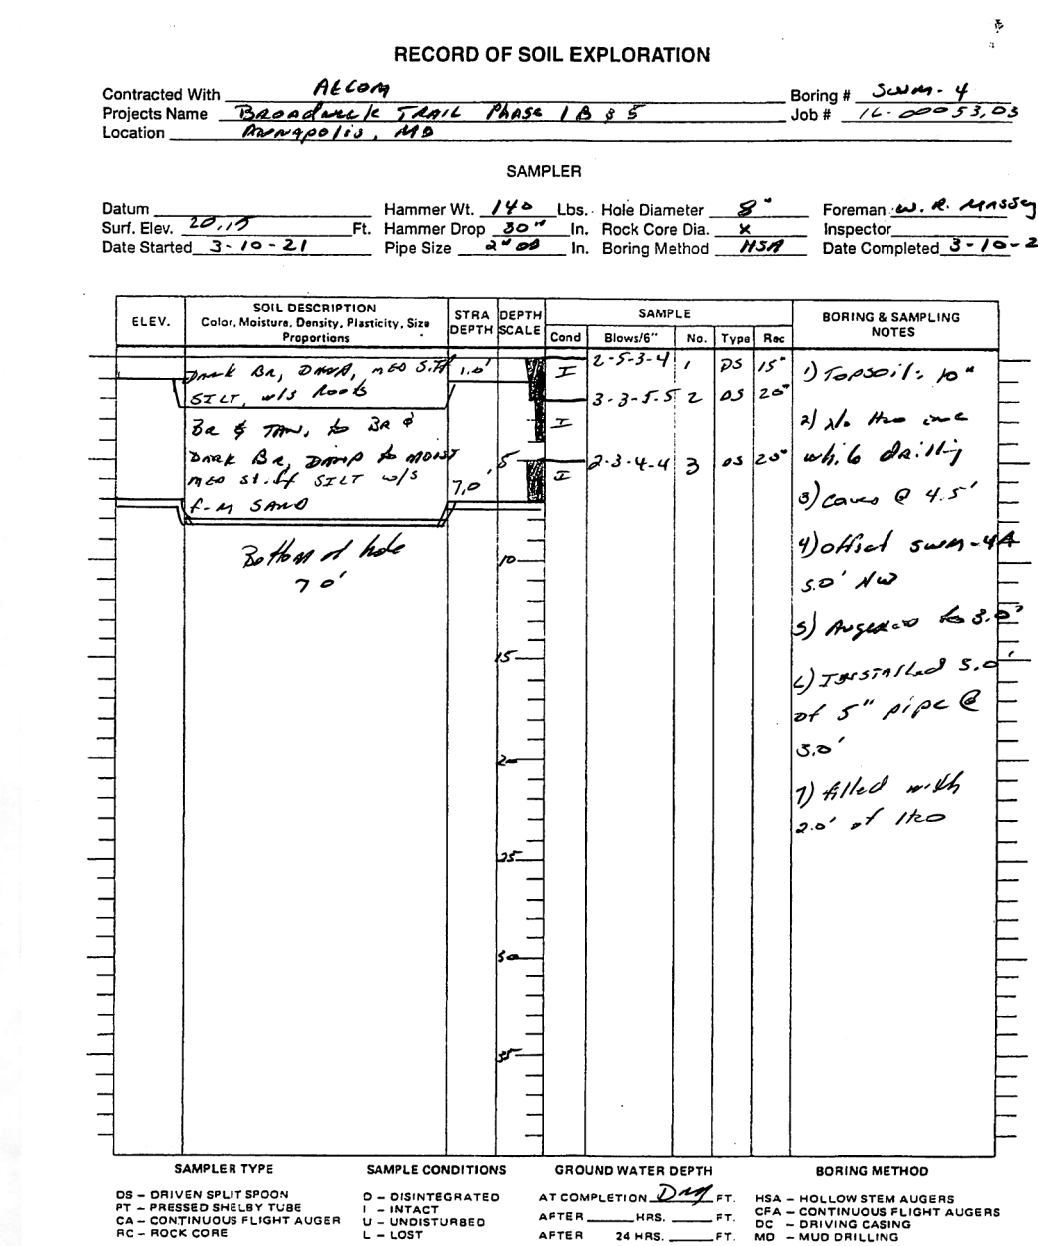 RECORD OF SOIL EXPLORATION
Contracted With AECOM Boring # SWM-4
Projects Name Broadneck Trail Phase 1B & 5 Job # 16-00053.03
Location Annapolis, MD
SAMPLER
Datum Hammer Wt. 140 Lbs. Hole Diameter 8" Foreman W. R. Massey
Surf. Elev. 20.15 Ft. Hammer Drop 30" In. Rock Core Dia. X Inspector
Date Started 3-10-21 Pipe Size 2" OD In. Boring Method HSA Date Completed 3-10-2
ELEV. SOIL DESCRIPTION STRA DEPTH DEPTH SCALE SAMPLE BORING & SAMPLING NOTES
Color, Moisture, Density, Plasticity, Size
Proportions
Cond Blows/6" No. Type Rec
Dark Br, Damp, med Stiff 1.0' I 2-5-3-4 1 DS 15" 1) Topsoil: 10"
SILT, w/s Roots 3-3-5-5 2 DS 20"
Br & TAN, to Br & I 2) No H2O
while drilling
Dark Br, Damp to moist 5 2-3-4-4 3 DS 20"
med stiff SILT w/s 7.0' I
f-m SAND 3) Caves @ 4.5'
Bottom of hole
7.0'
10
4) offset SWM-4A
5.0' NW
5) Augered to 3.0'
15
6) Installed 5.0'
of 5" pipe @
3.0'
20
7) filled with
2.0' of H2O
25
30
35
SAMPLER TYPE
DS – DRIVEN SPLIT SPOON
PT – PRESSED SHELBY TUBE
CA – CONTINUOUS FLIGHT AUGER
RC – ROCK CORE
SAMPLE CONDITIONS
D – DISINTEGRATED
I – INTACT
U – UNDISTURBED
L – LOST
GROUND WATER DEPTH
AT COMPLETION Dry FT.
AFTER HRS. FT.
AFTER 24 HRS. FT.
BORING METHOD
HSA – HOLLOW STEM AUGERS
CFA – CONTINUOUS FLIGHT AUGERS
DC – DRIVING CASING
MD – MUD DRILLING